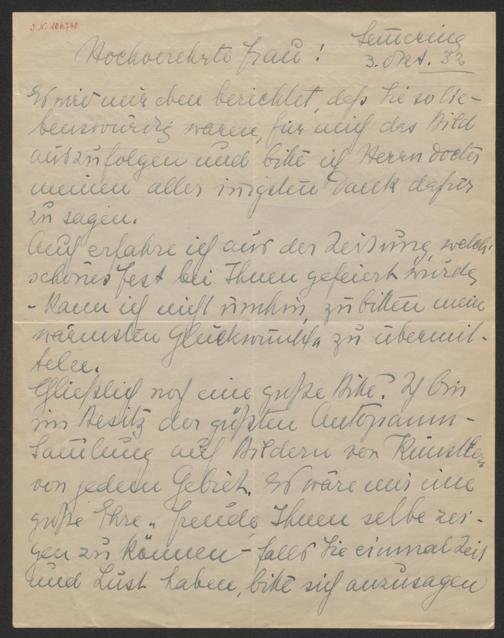 J.N. 186740
Semering
3. Okt. 32
Hochverehrte Frau!
Es wird mir eben berichtet, daß Sie so lie-
benswürdig waren, für mich das Bild
auszufolgen und bitte ich Herrn Doctor
meinen aller innigsten Dank dafür
zu sagen.
Auch erfahre ich aus der Zeitung, welch
schönes Fest bei Ihnen gefeiert wurde,
- kann ich nicht umhin, zu bitten meine
wärmsten Glückwünsche zu übermit-
teln.
Schließlich noch eine große Bitte. Ich bin
im Besitz der größten
Samlung auf Bildern von Künstler
von jedem Gebiet. Es wäre mir eine
große Ehre u. Freude, Ihnen selbe zei-
gen zu können - falls Sie einmal Zeit
und Lust haben, bitte sich anzusagen